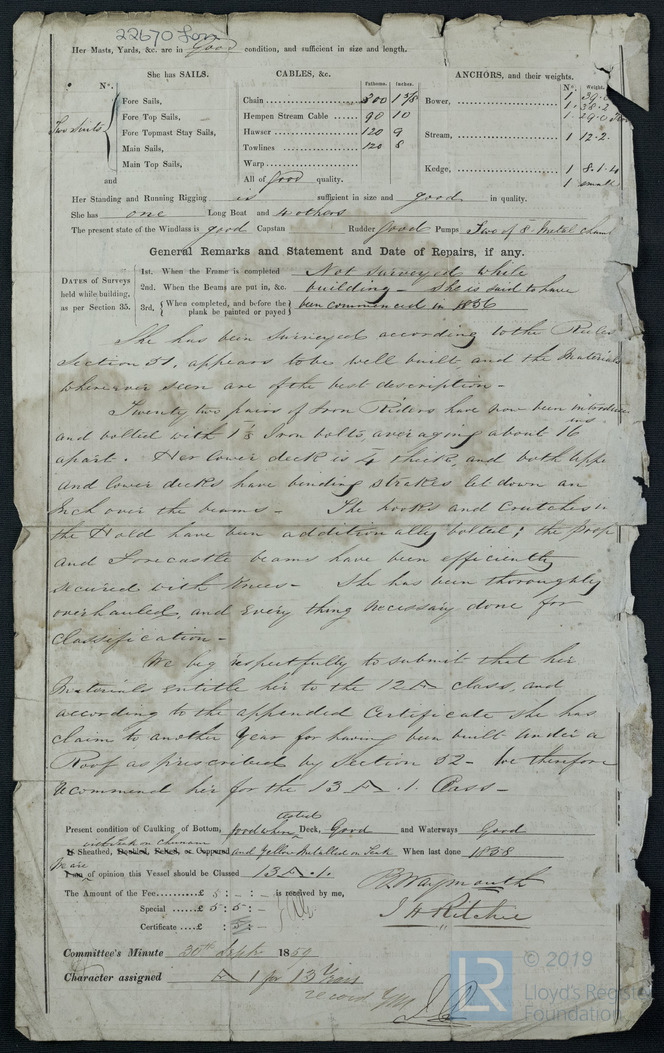 22670 Lon
Her Masts, Yards, &c. are in good condition, and sufficient in size and length.
She has SAILS.
CABLES, &c.
ANCHORS, and their weights.
N°.
Fathoms.
Inches.
N°.
Weight.
Two suits
Fore Sails,
Fore Top Sails,
Fore Topmast Stay Sails,
Main Sails,
Main Top Sails,
and
Chain 300 1 5/8
Hempen Stream Cable 90 10
Hawser 120 9
Towlines 120 8
Warp
All of good quality.
Bower, 1
1 38.2
1 29.0
Stream, 1 12.2
Kedge, 1 8.1.4
1 small
Her Standing and Running Rigging is sufficient in size and good in quality.
She has one Long Boat and 4 others
The present state of the Windlass is good Capstan Rudder Good Pumps Two of 8 Metal
General Remarks and Statement and Date of Repairs, if any.
DATES of Surveys held while building, as per Section 35.
1st. When the Frame is completed
2nd. When the Beams are put in, &c.
3rd, { When completed, and before the plank be painted or payed }
Not surveyed while
building - She is said to have
been commenced in 1836
She has been surveyed according to the Rules
Section 51, appears to be well built, and the Materials
wherever seen are of the best description -
Twenty two pairs of Iron Riders have now been
and bolted with Iron bolts, averaging about 16 ins
apart. Her lower deck is 4 thick, and both
and lower decks have binding strakes let down an
Inch over the beams - The hooks and Crutches in
the Hold have been additionally bolted; the Poop
and Forecastle beams have been efficiently
secured with Knees - She has been thoroughly
overhauled, and every thing necessary done for
Classification -
We beg respectfully to submit that her
Materials entitle her to the 12 A class, and
according to the appended Certificate she has
claim to another Year for having been built under a
Roof as prescribed by Section 52 - We therefore
recommend her for the 13 A .1. Class -
Present condition of Caulking of Bottom, Good when tested Deck, Good and Waterways Good
with felt on Chunam
Is Sheathed, Doubled, Felted, or Coppered and Yellow Metalled on Teak When last done 1838
We are
I am of opinion this Vessel should be Classed 13 A .1.
The Amount of the Fee £ 5 : - : - is received by me,
Special £ 5 : 5 : -
Certificate £ : 5 : -
B Waymouth
J H Ritchie
Committee's Minute 30th Sept 1850
Character assigned A 1 for 13 Years
© 2019
LR
Lloyd's Register
Foundation